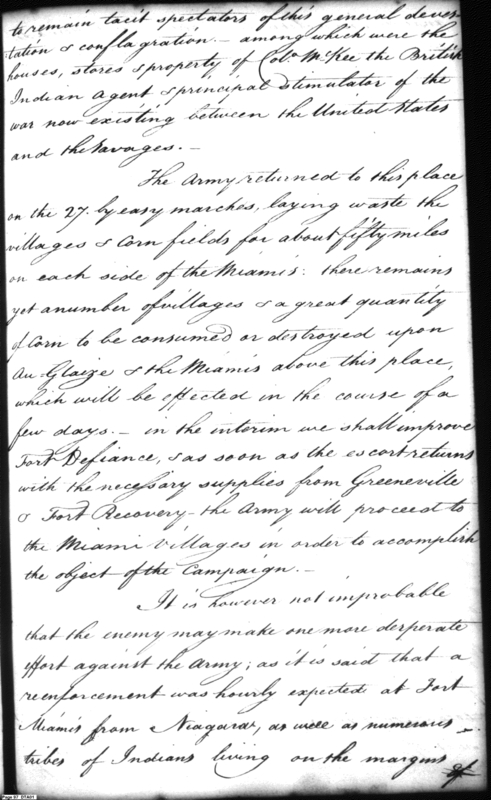 to remain tacit spectators of this general devas-
tation & conflagration. — among which were the
houses, stores & property of Colo. McKee the British
Indian Agent & principal stimulator of the
war now existing between the United States
and the Savages. —
The Army returned to this place
on the 27. by easy marches, laying waste the
villages & Corn fields for about fifty miles
on each side of the Miamis: there remains
yet a number of villages & a great quantity
of Corn to be consumed or destroyed upon
Au Glaize & the Miamis above this place,
which will be effected in the course of a
few days. — in the interim we shall improve
Fort Defiance, & as soon as the escort returns
with the necessary supplies from Greeneville
& Fort Recovery — the Army will proceed to
the Miami Villages in order to accomplish
the object of the Campaign. —
It is however not improbable
that the enemy may make one more desperate
effort against the Army; as it is said that a
reenforcement was hourly expected at Fort
Miamis from Niagara, as well as numerous
tribes of Indians living on the margins